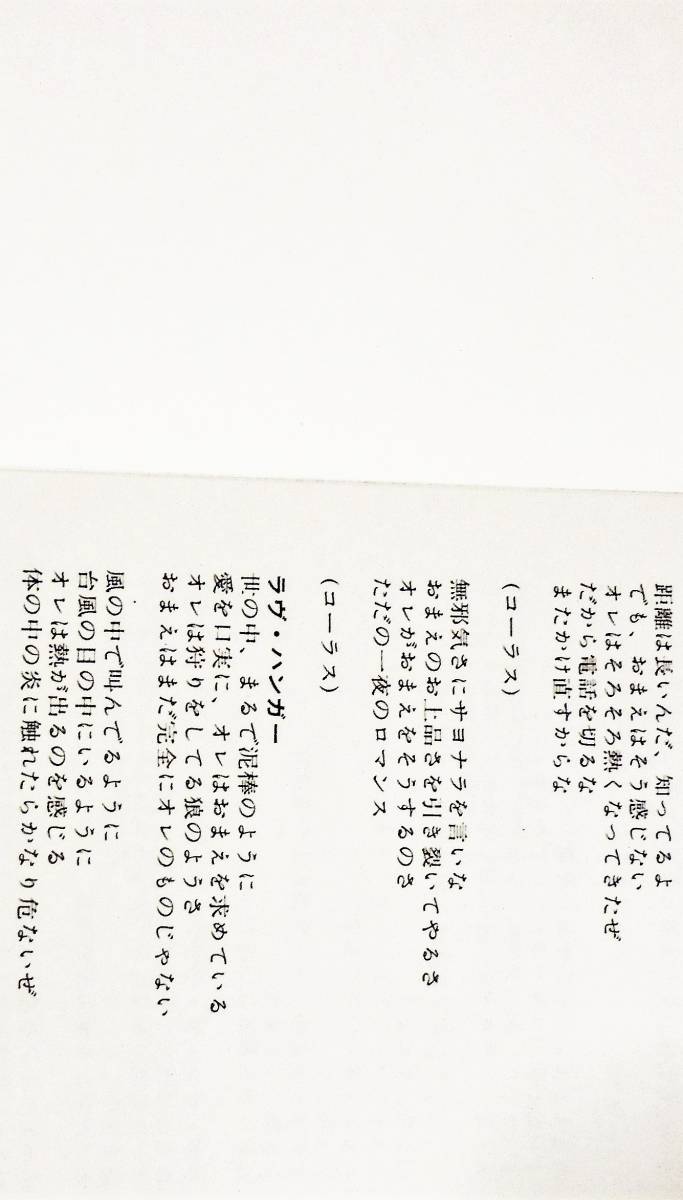 距離は長いんだ、知ってるよ
でも、おまえはそう感じない
オレはそろそろ熱くなってきたぜ
だから電話を切るな
またかけ直すからな
(コーラス)
無邪気さにサヨナラを言いな
おまえのお上品さを引き裂いてやるさ
オレがおまえをそうするのさ
ただの一夜のロマンス
(コーラス)
ラヴ・ハンガー
世の中、まるで泥棒のように
愛を口実に、オレはおまえを求めている
オレは狩りをしてる狼のようさ
おまえはまだ完全にオレのものじゃない
風の中で叫んでるように
台風の目の中にいるように
オレは熱が出るのを感じる
体の中の炎に触れたらかなり危ないぜ